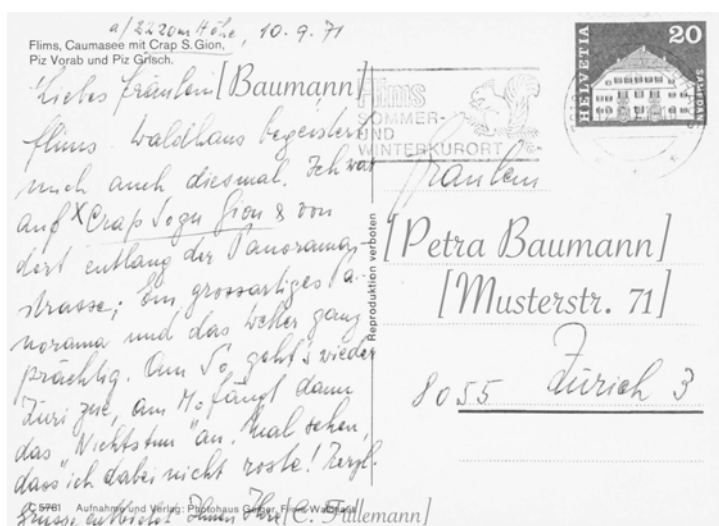 a/2220m Höhe, 10.9.71
Flims, Caumasee mit Crap S. Gion,
Piz Vorab und Piz Grisch.
Liebes Fräulein [Baumann]
Flims-Waldhaus begeistert
mich auch diesmal. Ich war
auf X Crap Sogn Gion & von
dort entlang der Panorama-
strasse; Ein grossartiges Pa-
norama und das Wetter ganz
prächtig. Am So. geht's wieder
Züri zue, am Mo. fängt dann
das "Nichtstun" an. Mal sehen,
dass ich dabei nicht roste! Herzl.
Grüsse entbietet Ihnen Ihre [C. Füllemann]
C 5781 Aufnahme und Verlag: Photohaus Geiger, Flims-Waldhaus
Reproduktion verboten
Flims
SOMMER-
UND
WINTERKURORT
HELVETIA
20
SAMEDAN
Fräulein
[Petra Baumann]
[Musterstr. 71]
8055 Zürich 3